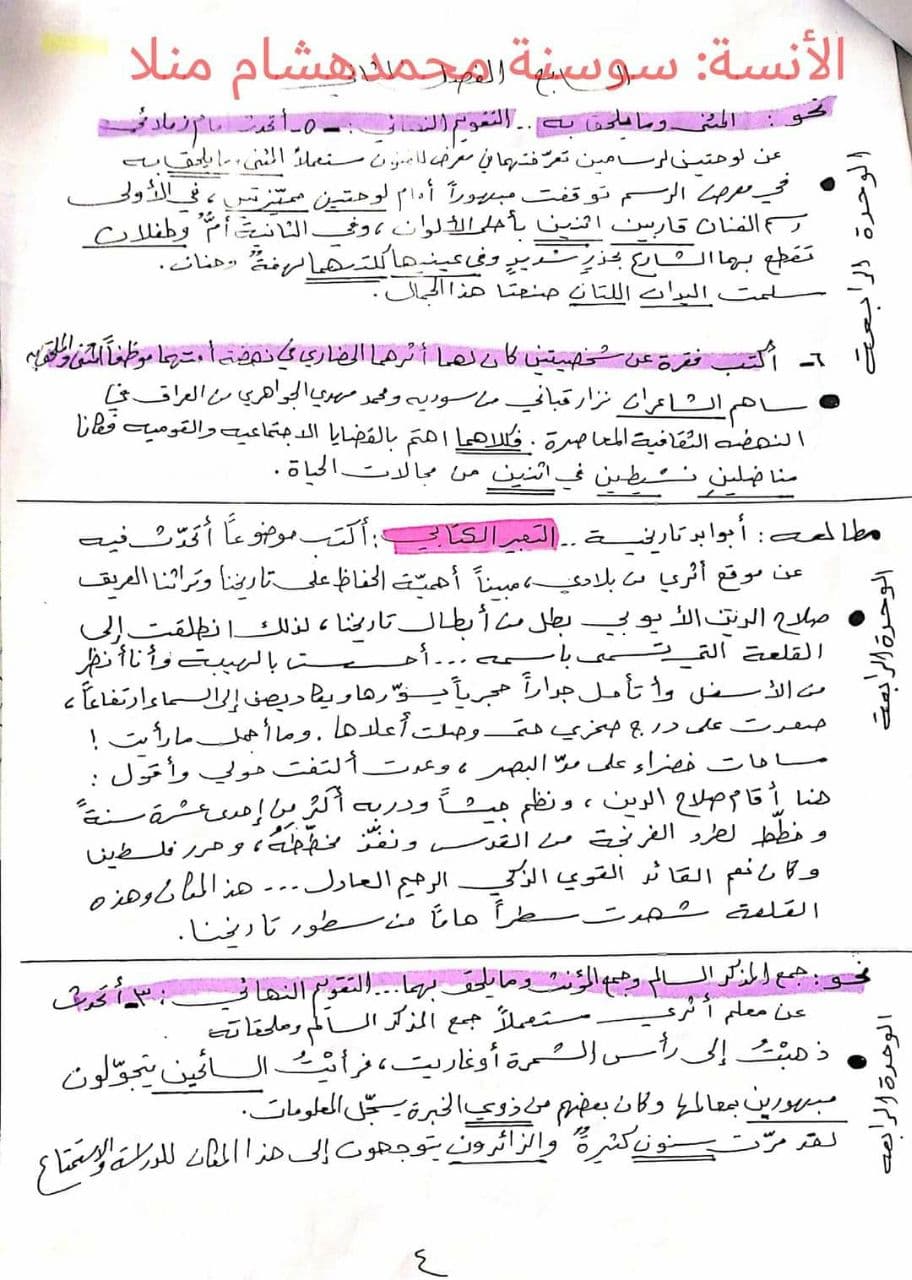 الأنسة: سوسنة محمد هشام منلا
السابع الفصل الثاني
نحو: المثنى وما يلحق به .. التقويم النهائي: - ٥- أتحدث أمام زملائي
عن لوحتين لرسامين تعرفتهما في معرض للفنون مستعملاً المثنى وما يلحق به
في معرض الرسم توقفت مبهوراً أمام لوحتين مميزتين، في الأولى
رسم الفنان قاربين اثنين بأحلى الألوان، وفي الثانية أمٌّ وطفلان
تقطع بهما الشارع بحذرٍ شديدٍ وفي عينيها كلتيهما لهفة وحنان.
سلمت اليدان اللتان صنعتا هذا الجمال.
الوحدة الرابعة
٦- أكتب فقرة عن شخصيتين كان لهما أثرهما الحضاري في نهضة أمتهما موظفاً المثنى والملحق به
ساهم الشاعران نزار قباني من سوريه ومحمد مهدي الجواهري من العراق في
النهضه الثقافية المعاصرة. فكلاهما اهتم بالقضايا الاجتماعيه والقوميه فكانا
مناضلين نشيطين في اثنين من مجالات الحياة.
مطالعه: أبوابد تاريخية .. التعبير الكتابي: أكتب موضوعاً أتحدّث فيه
عن موقع أثري من بلادي، مبيناً أهميّة الحفاظ على تاريخنا وتراثنا العريق
صلاح الدين الأيوبي بطل من أبطال تاريخنا، لذلك انطلقت إلى
القلعة التي تسمى باسمه ... أحسست بالهيبة وأنا أنظر
من الأسفل وأتأمل جداراً حجرياً يسوّرها ويكاد يصل إلى السماء ارتفاعاً،
صعدت على درج صخري حتى وصلت أعلاها. وما أجمل ما رأيت!
مساحات خضراء على مدّ البصر، وعدت ألتفت حولي وأقول:
هنا أقام صلاح الدين، ونظم جيشاً ودربه أكثر من إحدى عشرة سنةً
وخطّط لطرد الفرنجة من القدس ونفّذ مخطّطهُ، وحرر فلسطين
وكان نعم القائد القوي الذكي الرحيم العادل ... هذا المكان وهذه
القلعة شهدت سطراً هامّاً من سطور تاريخنا.
الوحدة الرابعة
نحو: جمع المذكر السالم وجمع المؤنث وما يلحق بهما... التقويم النهائي: ٣- أتحدث
عن معلم أثري مستعملاً جمع المذكر السالم وملحقاته
ذهبْتُ إلى رأس الشمرة أوغاريت، فرأيْتُ السائحين يتجوّلون
مبهورين بمعالمها وكان بعضهم من ذوي الخبرة يسجّل المعلومات.
لقد مرّت سنون كثيرةٌ والزائرون يتوجهون إلى هذا المكان للدراسة والاستمتاع
الوحدة الرابعه
٤